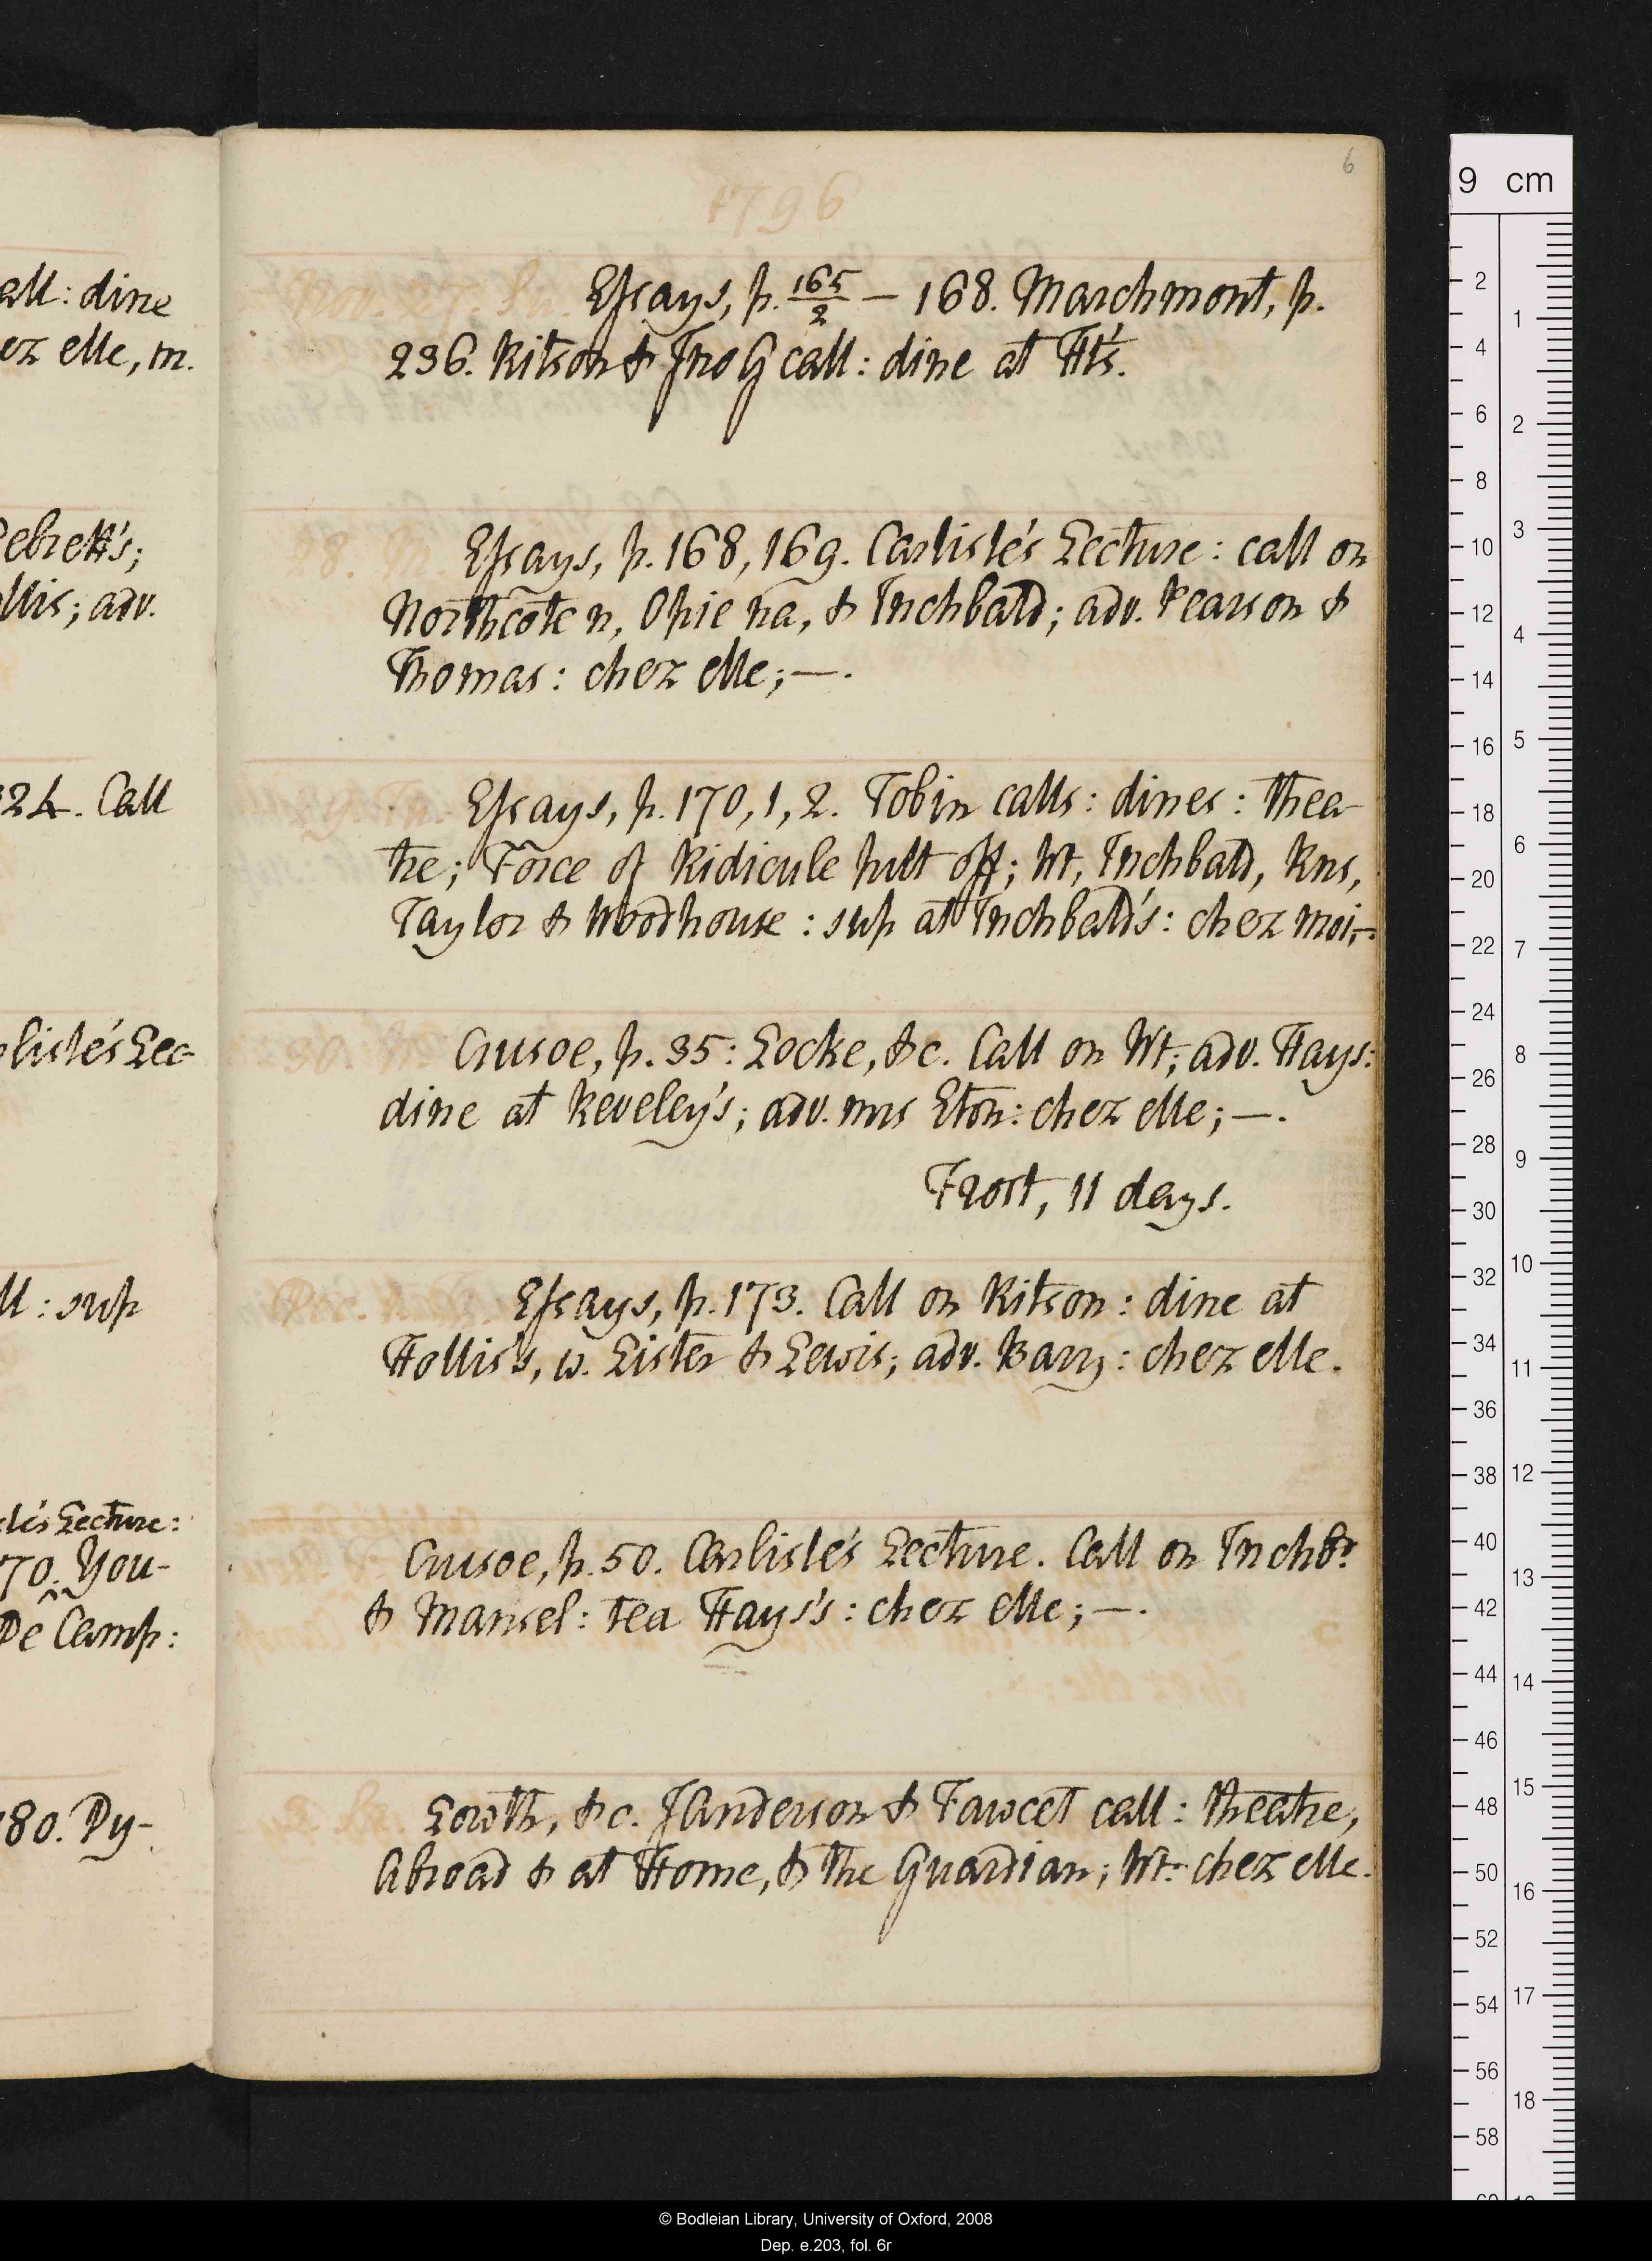 6
1796
all: dine
ez elle, m.
Nov. 27. Su. Essays, p. 165/2 — 168. Marchmont, p.
236. Ritson & Jno G call: dine at Ht's.
Debrett's;
ollis; adv.
28. M. Essays, p. 168, 169. Carlisle's Lecture: call on
Northcote n, Opie na, & Inchbald; adv. Pearson &
Thomas: chez elle; —.
324. Call
29. Tu. Essays, p. 170, 1, 2. Tobin calls: dines: thea-
tre; Force of Ridicule; putt off; Wt, Inchbald, Rns,
Taylor & Woodhouse: sup at Inchbald's: chez moi,—.
rlisle's Lec-
30. W. Crusoe, p. 35: Locke, &c. Call on Wt; adv. Hays:
dine at Reveley's; adv. mrs Eton: chez elle; —.
Frost, 11 days.
ll: sup
Dec. 1. Th. Essays, p. 173. Call on Ritson: dine at
Hollis's, w. Lister & Lewis; adv. Barry: chez elle.
sle's Lecture:
70. You-
De Camp:
Crusoe, p. 50. Carlisle's Lecture. Call on Inchbd
& Mansel: tea Hays's: chez elle; —.
180. Dy-
3. Sa. Lowth, &c. J Anderson & Fawcet call: theatre,
Abroad & at Home, & the Guardian; Wt: chez elle.
9 cm
2 4 6 8 10 12 14 16 18 20 22 24 26 28 30 32 34 36 38 40 42 44 46 48 50 52 54 56 58
1 2 3 4 5 6 7 8 9 10 11 12 13 14 15 16 17 18
© Bodleian Library, University of Oxford, 2008
Dep. e.203, fol. 6r